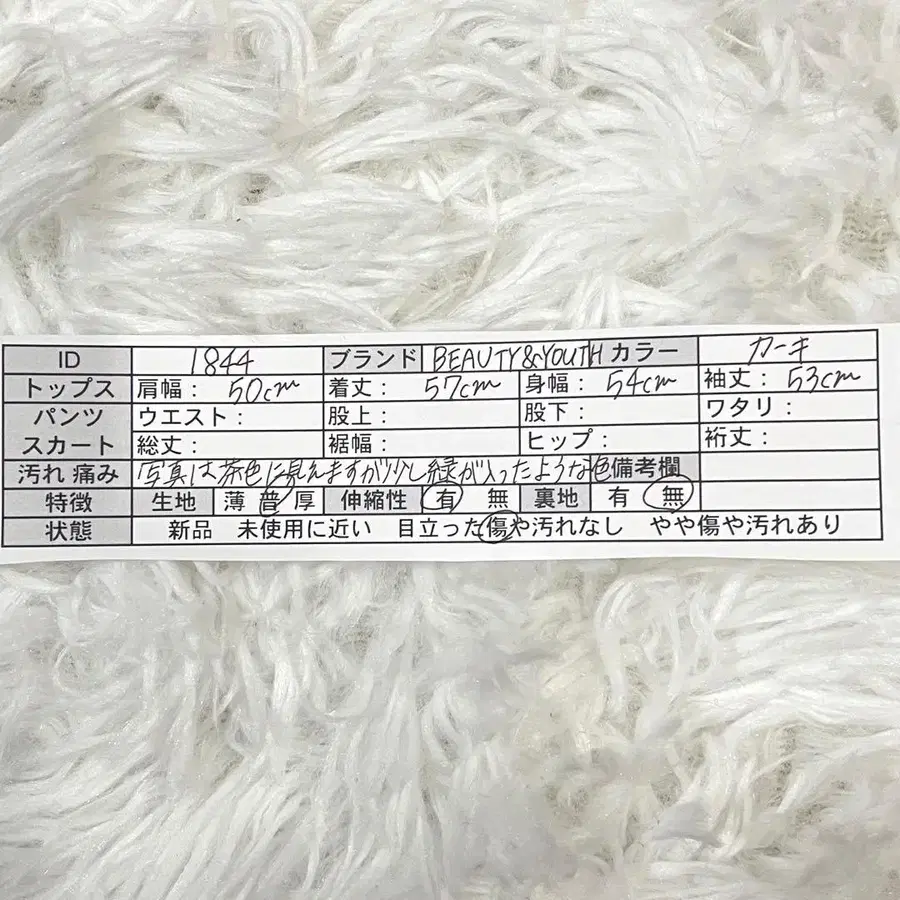 ID 1844 ブランド BEAUTY&YOUTH カラー カーキ
トップス 肩幅: 50cm 着丈: 57cm 身幅: 54cm 袖丈: 53cm
パンツ ウエスト: 股上: 股下: ワタリ:
スカート 総丈: 裾幅: ヒップ: 裄丈:
汚れ 痛み 写真は茶色に見えますが少し緑が入ったような色 備考欄
特徴 生地 薄 普 厚 伸縮性 有 無 裏地 有 無
状態 新品 未使用に近い 目立った傷や汚れなし やや傷や汚れあり